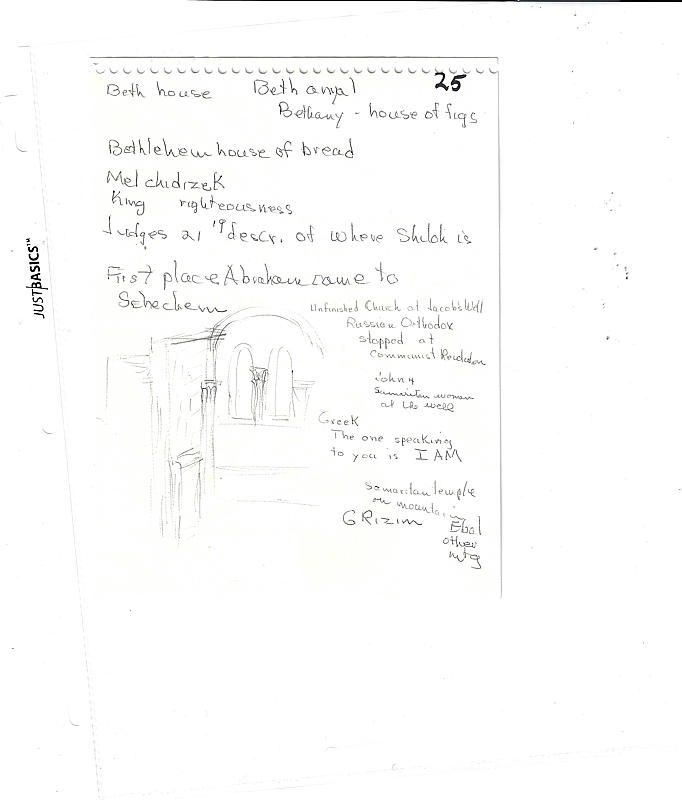 25
Beth house Beth anyal
Bethany - house of figs
Bethlehem house of bread
Melchidizek
King righteousness
Judges 21 19 descr. of where Shiloh is
First place Abraham came to
Schechem
Unfinished Church at Jacobs Well
Russian Orthodox
stopped at
Communist Revolution
John 4
Samaritan woman
at the well
Greek
The one speaking
to you is I AM
Samaritan temple
on mountain
GRizim Ebal
other
mtg
JUSTBASICS™